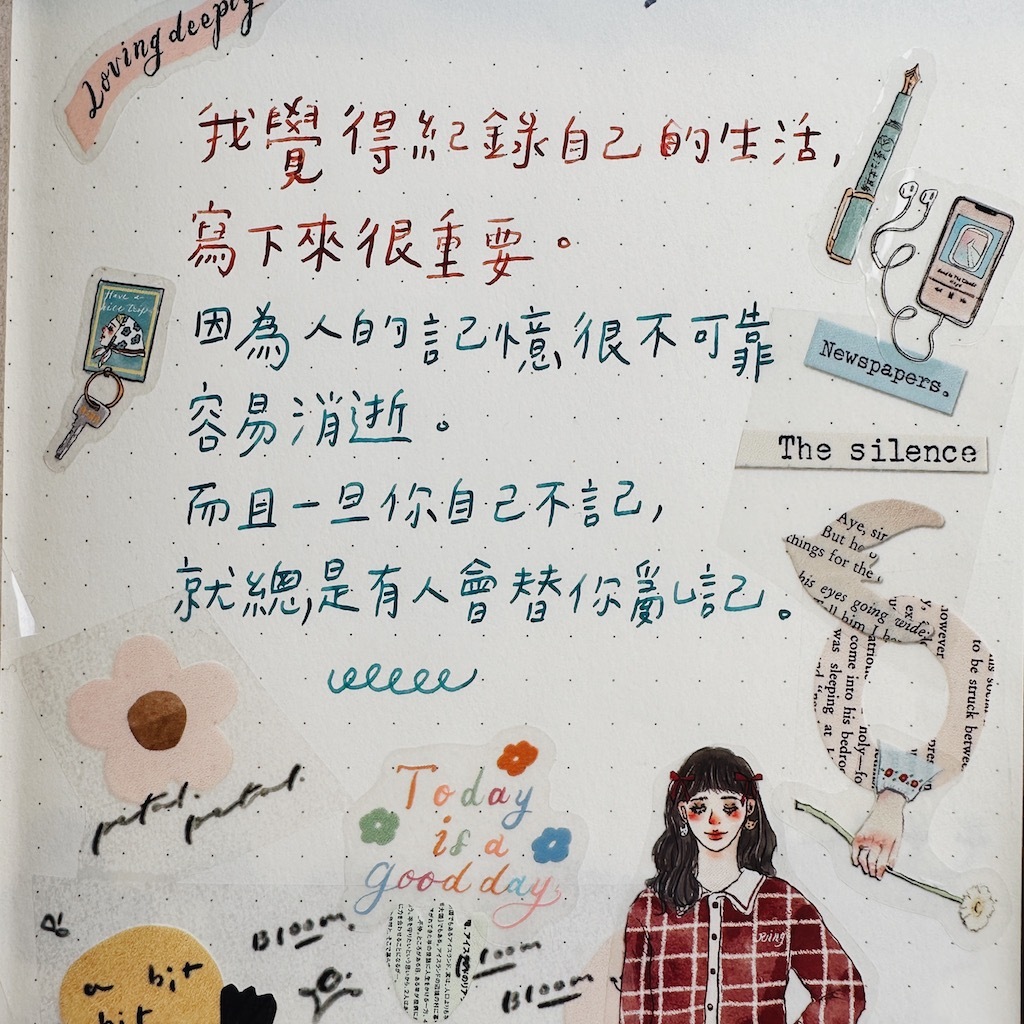 Loving deeply
我覺得紀錄自己的生活,
寫下來很重要。
因為人的記憶很不可靠
容易消逝。
而且一旦你自己不記,
就總是有人會替你亂記。
Have a
nice trip
Newspapers.
The silence
Aye, sir
But he
things for the
his eyes going wide
him, I
however
to be struck betwee
come into his bedro
was sleeping at
noly—fo
petal.
petal.
Today
is a
good day
Being
Bloom.
Bloom
a bit
bit